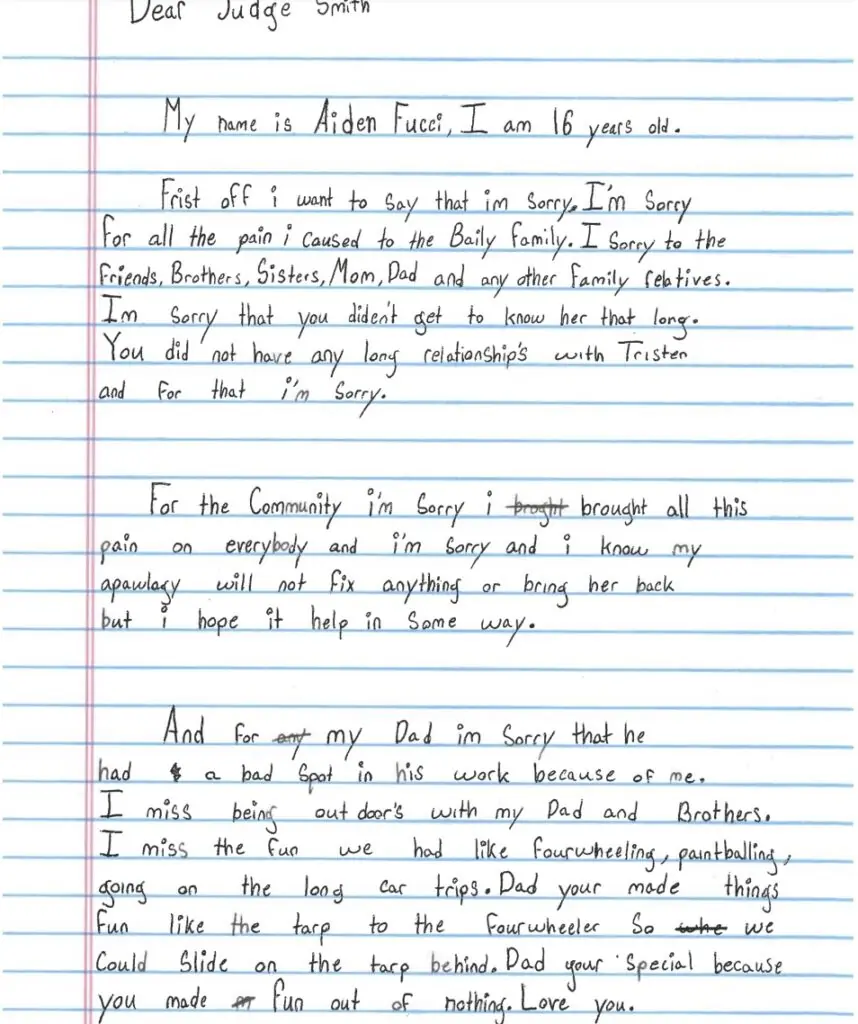 Dear Judge Smith
My name is Aiden Fucci, I am 16 years old.
Frist off i want to say that im sorry. I'm Sorry
for all the pain i caused to the Baily family. I sorry to the
friends, Brothers, Sisters, Mom, Dad and any other family relatives.
Im sorry that you diden't get to know her that long.
You did not have any long relationship's with Tristen
and for that i'm sorry.
For the Community i'm sorry i broght brought all this
pain on everybody and i'm sorry and i know my
apawlagy will not fix anything or bring her back
but i hope it help in some way.
And for any my Dad im sorry that he
had a bad spot in his work because of me.
I miss being out door's with my Dad and Brothers.
I miss the fun we had like fourwheeling, paintballing,
going on the long car trips. Dad your made things
fun like the tarp to the fourwheeler so whe we
could slide on the tarp behind. Dad your special because
you made fun out of nothing. Love you.